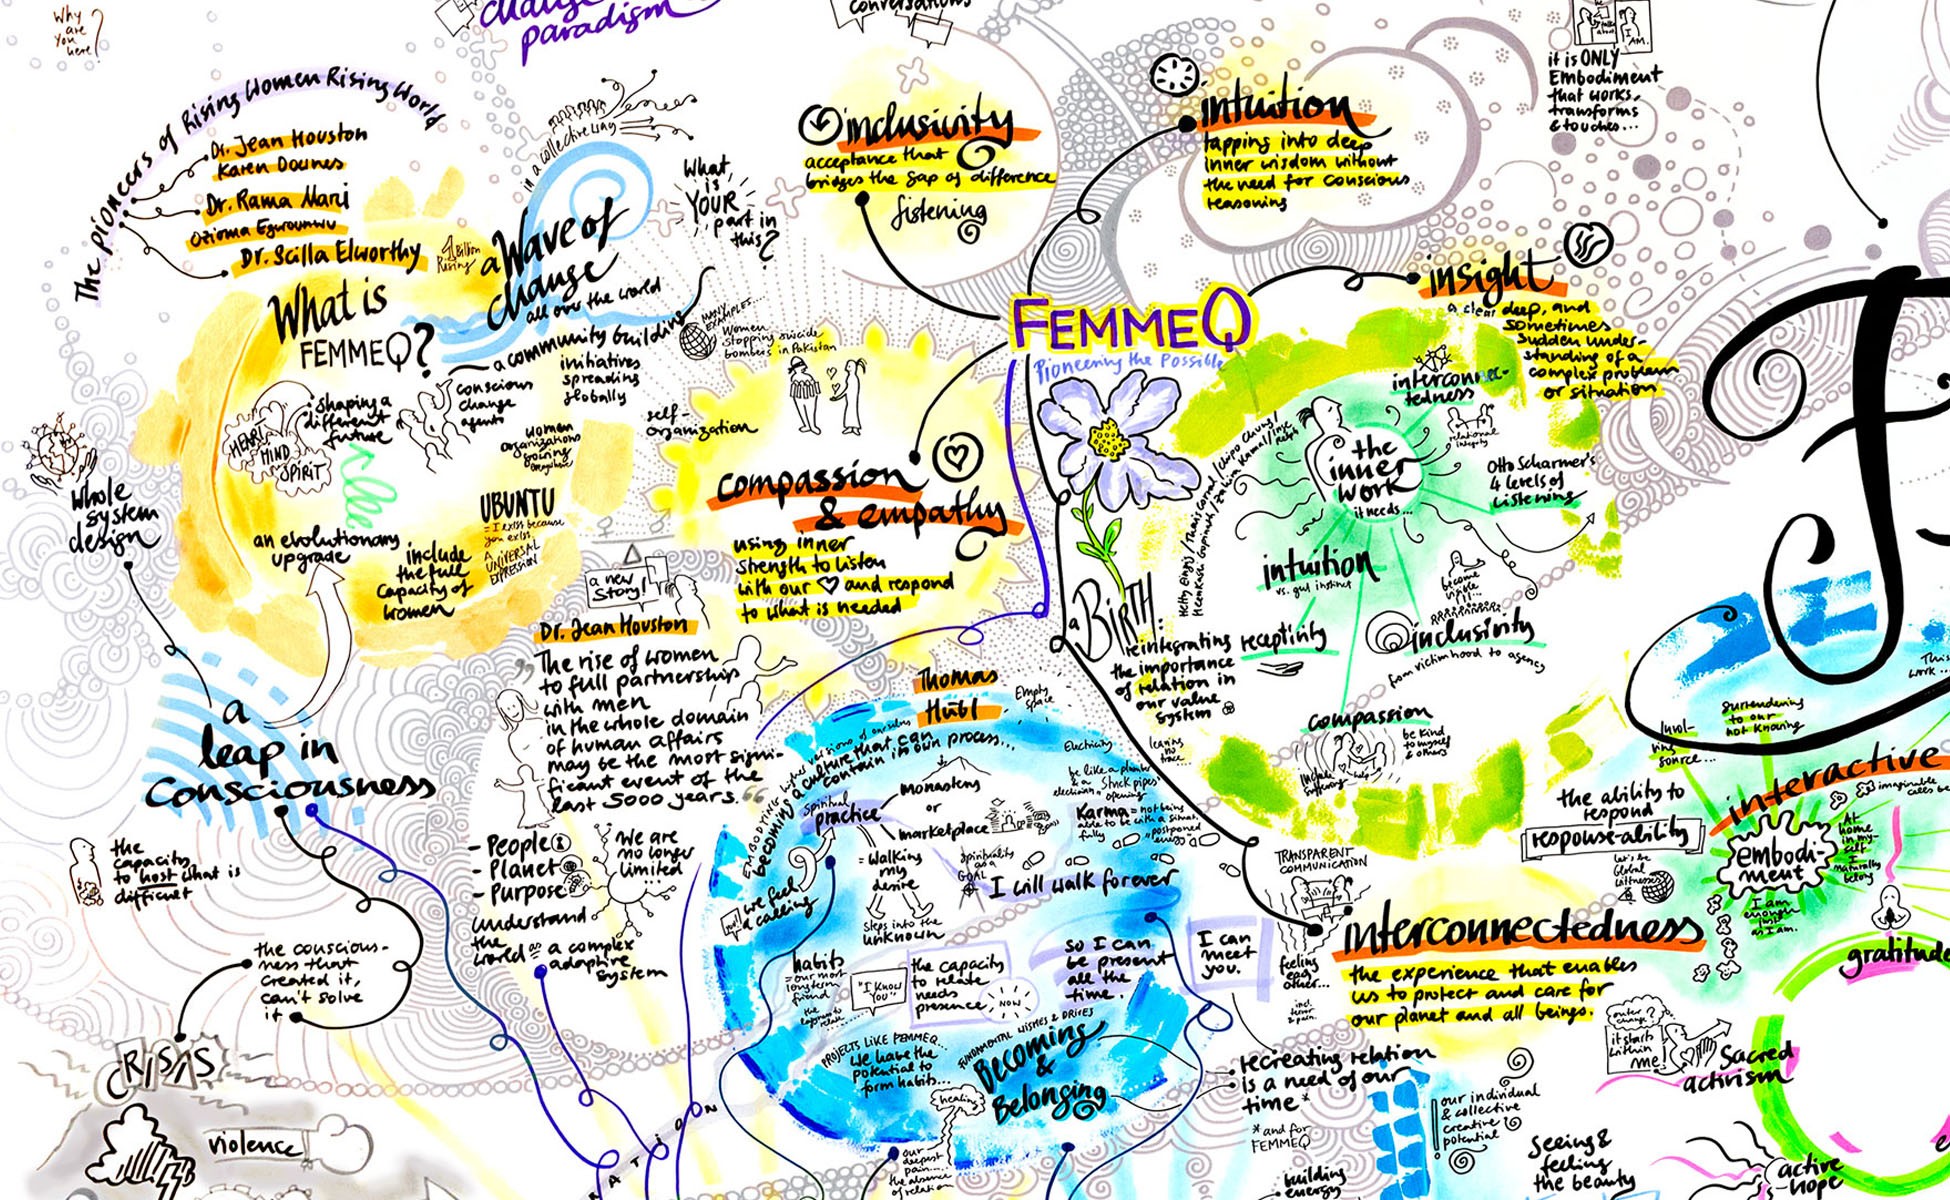 Why
are
you
here?
change
paradigm
conversations
The pioneers of Rising Women Rising World
Dr. Jean Houston
Karen Downes
Dr. Rama Mani
Ozioma Egwuonwu
Dr. Scilla Elworthy
1 Billion
Rising
What is
FEMMEQ?
in a collective way
a Wave of
change
all over the world
What
is
YOUR
part in
this?
a community building
initiatives
spreading
globally
MANY
EXAMPLES....
Women
stopping suicide
bombers in Pakistan
conscious
change
agents
shaping a
different
future
HEART
MIND
SPIRIT
women
organizations
growing
anywhere
self-
organization
UBUNTU
= I exist because
you exist.
A
UNIVERSAL
EXPRESSION
an evolutionary
upgrade
include
the full
capacity of
women
whole
system
design
a
leap in
consciousness
the
capacity
to host what is
difficult
the conscious-
ness that
created it,
can't solve
it
CRISIS
violence
inclusivity
acceptance that
bridges the gap of difference
listening
intuition
tapping into deep
inner wisdom without
the need for conscious
reasoning
it is ONLY
Embodiment
that works,
transforms
& touches...
I AM.
insight
a clear deep, and
sometimes
sudden under-
standing of a
complex problem
or situation
FEMMEQ
Pioneering the Possible
compassion
& empathy
using inner
strength to listen
with our ♡ and respond
to what is needed
a new
story!
Dr. Jean Houston
"The rise of women
to full partnership
with men
in the whole domain
of human affairs
may be the most signi-
ficant event of the
last 5000 years."
- People
- Planet
- Purpose
We are
no longer
limited
understand
the
world as a complex
adaptive
system
interconnec-
tedness
relational
integrity
the
inner
work
it needs...
Otto Scharmer's
4 levels of
Listening
intuition
vs. gut instinct
become
visible
!!!
receptivity
inclusivity
from victimhood to agency
compassion
be kind
to myself
& others
include
suffering
a BIRTH:
reintegrating
the importance
of relation in
our value
system
leaving
no
trace..
Thomas
Hübl
Empty
space
Embodying higher versions of ourselves
becoming a culture that can
contain its own process...
Electricity
spiritual
practice
monastery
or
marketplace
Karma = not being
able to be with a situat.
fully
"postponed
energy"
= walking
my
desire
spirituality
as a
GOAL
I will walk forever
we feel
a calling
steps into the
unknown
habits
= our most
longterm
friend
"I KNOW
YOU"
the capacity
to relate
needs
presence
NOW
so I can
be present
all the
time.
I can
meet
you.
PROJECTS LIKE FEMMEQ...
we have the
potential to
form habits...
FUNDAMENTAL WISHES & DRIVES
Becoming
&
Belonging
healing
our
deepest
pain...
the absence
of relation
recreating relation
is a need of our
time*
*and for
FEMMEQ
building
energy
TRANSPARENT
COMMUNICATION
feeling
each
other...
incl.
terror
& pain.
interconnectedness
the experience that enables
us to protect and care for
our planet and all beings.
the ability to
respond
response-ability
let's be
Global
Witnesses
surrendering
to our
not knowing
Invol-
ving
source...
This
work..
interactive
embodi-
ment
At
home
in my-
self
I
naturally
belong
I am
enough
just
as I am.
gratitude
outer
change?
it starts
within
me!
sacred
activism
our individual
& collective
creative
potential
Seeing &
feeling
the beauty
active
hope